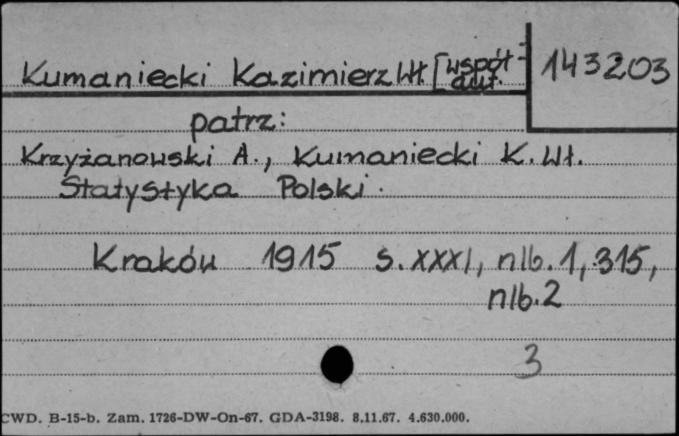 Kumaniecki Kazimierz Wł. [współ-
aut.
143203
patrz:
Krzyżanowski A., Kumaniecki K. Wł.
Statystyka Polski.
Kraków 1915 s. XXXI, nlb. 1, 315,
nlb. 2
3
CWD. B-15-b. Zam. 1726-DW-On-67. GDA-3198. 8.11.67. 4.630.000.